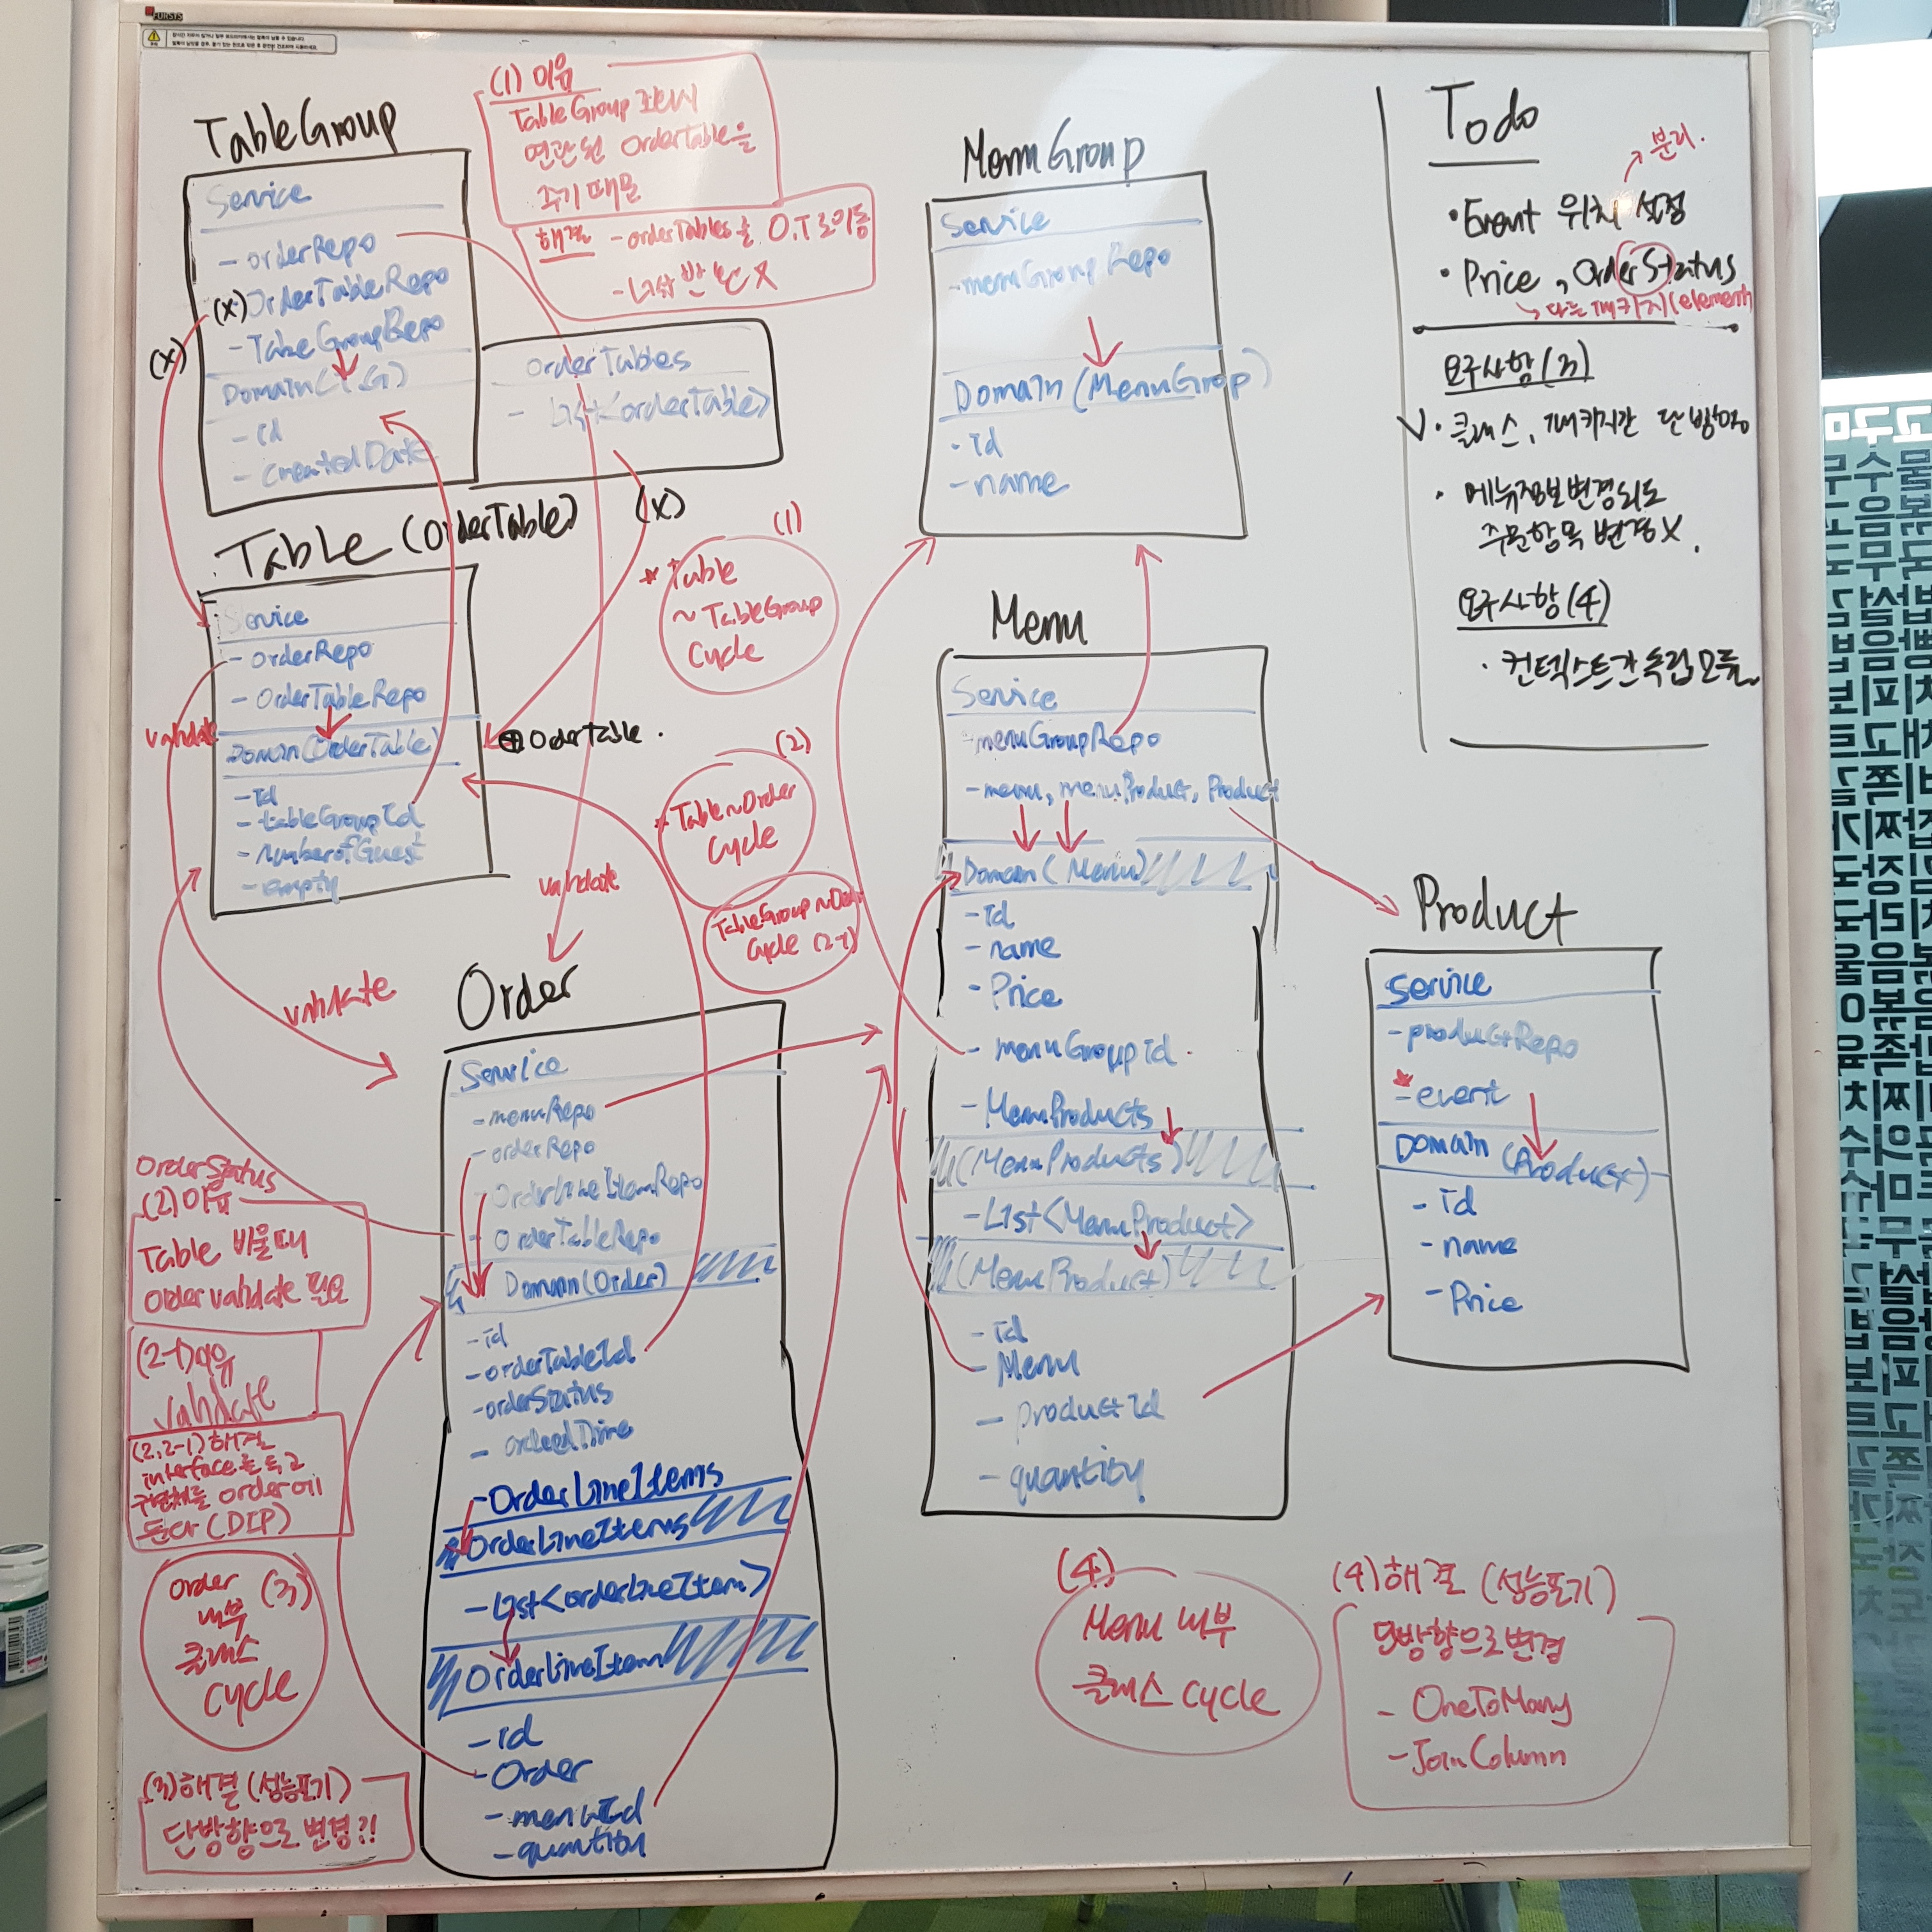 FURSYS
TableGroup
Service
- orderRepo
(x) OrderTableRepo
- TableGroupRepo
Domain(T.G)
- id
- createdDate
(x)
(1) 이유
TableGroup 조회시
연관된 OrderTable을
주기 때문
해결 - orderTables를 O.T로 이동
- List 반환 X
OrderTables
- List<orderTable>
(x)
Table (OrderTable)
Service
- orderRepo
- OrderTableRepo
Domain(OrderTable)
- id
- tableGroupId
- numberofGuest
- empty
validate
⊕ OrderTable.
(1)
* Table
~ TableGroup
Cycle
(2)
* Table~Order
Cycle
TableGroup~
Cycle (2-1)
validate
validate
Order
Service
- menuRepo
- orderRepo
- OrderLineItemRepo
- OrderTableRepo
Domain(Order)
- id
- orderTableId
- orderStatus
- OrderLineItems
OrderLineItems
- List<orderLineItem>
OrderLineItem
- id
- Order
- menuId
- quantity
OrderStatus
(2) 이유
Table 비울 때
Order validate 필요
(2-1) 이유
validate
(2, 2-1) 해결
interface를 두고
구현체를 order에
둔다 (DIP)
Order (3)
내부
클래스
cycle
(3) 해결 (성능포기)
단방향으로 변경?!
MenuGroup
Service
- menuGroupRepo
Domain (MenuGrop)
- id
- name
Menu
Service
- menuGroupRepo
- menu, menuProduct, Product
Domain (Menu)
- id
- name
- Price
- menuGroupId
- MenuProducts
(MenuProducts)
- List<MenuProduct>
(MenuProduct)
- id
- Menu
- productId
- quantity
Product
Service
- productRepo
* - event
Domain (Product)
- id
- name
- Price
(4)
Menu 내부
클래스 cycle
(4) 해결 (성능포기)
단방향으로 변경
- OneToMany
- JoinColumn
Todo
분리.
· Event 위치 선정
· Price, OrderStatus
다른 패키지(element)
요구사항(3)
V · 클래스, 패키지간 단방향
· 메뉴정보 변경되도
주문항목 변경 X.
요구사항(4)
· 컨텍스트간 독립모듈